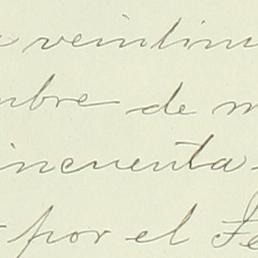 a veintinu
mbre de m
incuenta
por el Fe